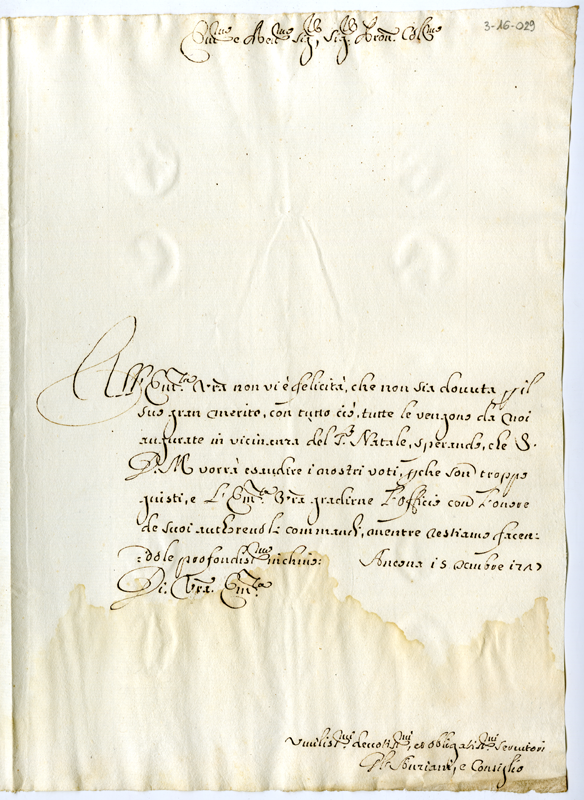 3-16-029
Em.mo e Rev.mo Sig.r, Sig.r Pron. Col.mo
All' Em.za Vra non vi è felicità, che non sia douuta p il
suo gran merito, con tutto ciò, tutte le vengono da noi
augurate in vicinanza del S. Natale, sperando, che S.
D. M. vorrà esaudire i nostri voti, pche son troppo
giusti, e L'Em.za Vra gradirne l'officio con l'onore
de suoi autoreuoli commandi, mentre restiamo facen-
dole profondiss.mo inchino: Ancona 15 Xcmbre
Di Vra Em.za
Vmiliss.mi deuotiss.mi, et obligatiss.mi seruitori
Gl' Anziani, e Consiglio